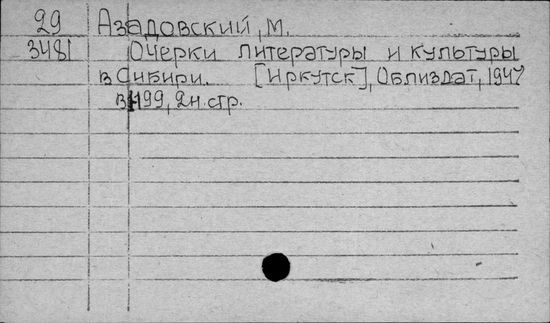 29 Азадовский, М.
3481 Очерки литературы и культуры
в Сибири. [Иркутск], Облиздат, 1947
199, 2н. стр.